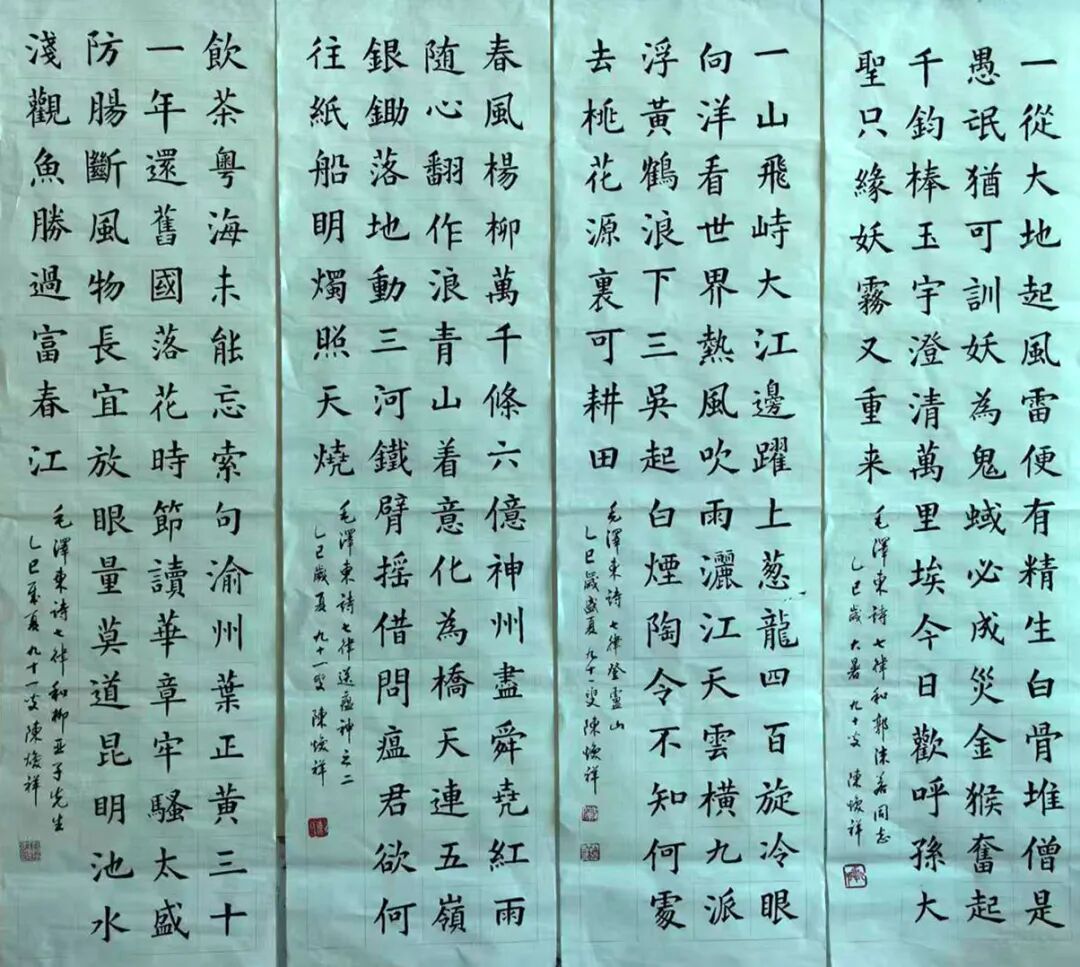 一從大地起風雷便有精生白骨堆僧是
愚氓猶可訓妖為鬼蜮必成災金猴奮起
千鈞棒玉宇澄清萬里埃今日歡呼孫大
聖只緣妖霧又重来
毛澤東詩七律和郭沫若同志
乙巳歲大暑九十叟陳煥祥
一山飛峙大江邊躍上葱龍四百旋冷眼
向洋看世界熱風吹雨灑江天雲橫九派
浮黃鶴浪下三吳起白煙陶令不知何處
去桃花源裏可耕田
毛澤東詩七律登廬山
乙巳歲盛夏九十一叟陳煥祥
春風楊柳萬千條六億神州盡舜堯紅雨
随心翻作浪青山着意化為橋天連五嶺
銀鋤落地動三河鐵臂摇借問瘟君欲何
往紙船明燭照天燒
毛澤東詩七律送瘟神之二
乙巳歲夏九十一叟陳煥祥
飲茶粵海未能忘索句渝州葉正黃三十
一年還舊國落花時節讀華章牢騷太盛
防腸斷風物長宜放眼量莫道昆明池水
淺觀魚勝過富春江
毛澤東詩七律和柳亚子先生
乙巳年夏九十一叟陳煥祥